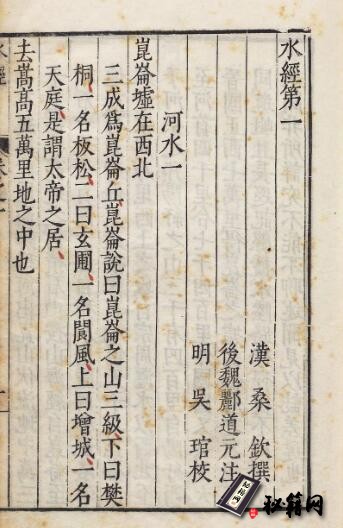 水經第一
漢 桑 欽撰
後魏酈道元注
明 吳 琯校
河水一
崑崙墟在西北
三成爲崑崙丘崑崙說曰崑崙之山三級下曰樊
桐一名板松二曰玄圃一名閬風上曰增城一名
天庭是謂太帝之居
去嵩高五萬里地之中也
水經
秘籍网